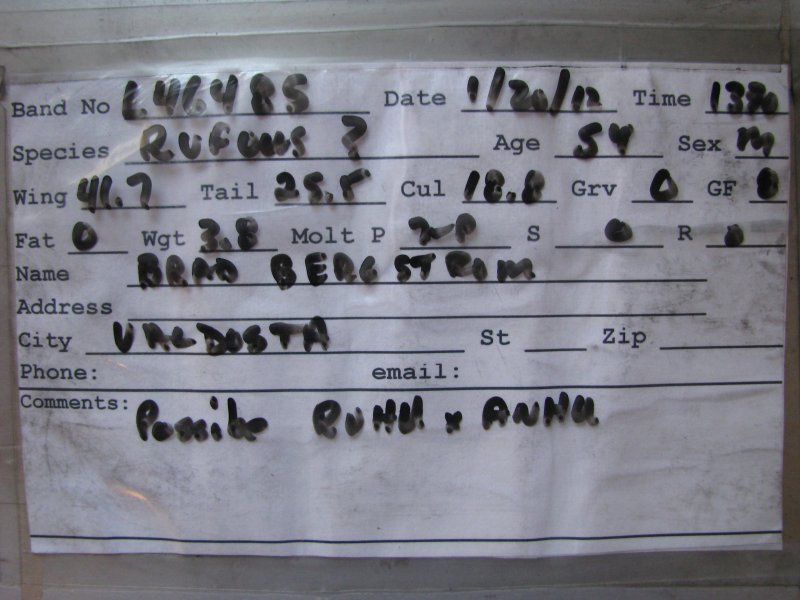 Band No L46485 Date 1/20/12 Time
Species RUFOUS ? Age SY Sex M
Wing 41.7 Tail 25.5 Cul 18.8 Grv 0 GF 0
Fat 0 Wgt 3.8 Molt P S 0 R 0
Name BRAD BERGSTROM
Address
City VALDOSTA St Zip
Phone: email:
Comments: Possible RUHU x ANHU